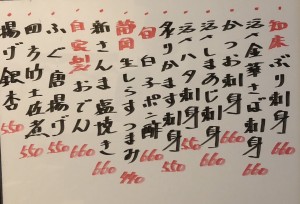 知床 ぶり刺身 660
かつお刺身 660
活〆金華さば刺身 660
活〆しまあじ刺身 660
活〆ハタ刺身 550
名りかま刺身 660
旬 白子ポン酢 660
静岡 生しらすつまみ 440
新さんま塩焼き 660
自家製 おでん 660
ふぐ唐揚げ 550
四方竹土佐煮 550
揚げ銀杏 550